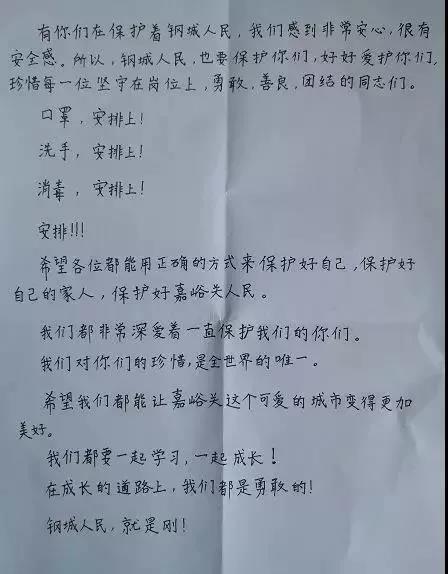 有你们在保护着钢城人民，我们感到非常安心，很有
安全感。所以，钢城人民，也要保护你们，好好爱护你们，
珍惜每一位坚守在岗位上，勇敢，善良，团结的同志们。
口罩，安排上！
洗手，安排上！
消毒，安排上！
安排!!!
希望各位都能用正确的方式来保护好自己，保护好
自己的家人，保护好嘉峪关人民。
我们都非常深爱着一直保护我们的你们。
我们对你们的珍惜，是全世界的唯一。
希望我们都能让嘉峪关这个可爱的城市变得更加
美好。
我们都要一起学习，一起成长！
在成长的道路上，我们都是勇敢的！
钢城人民，就是刚！